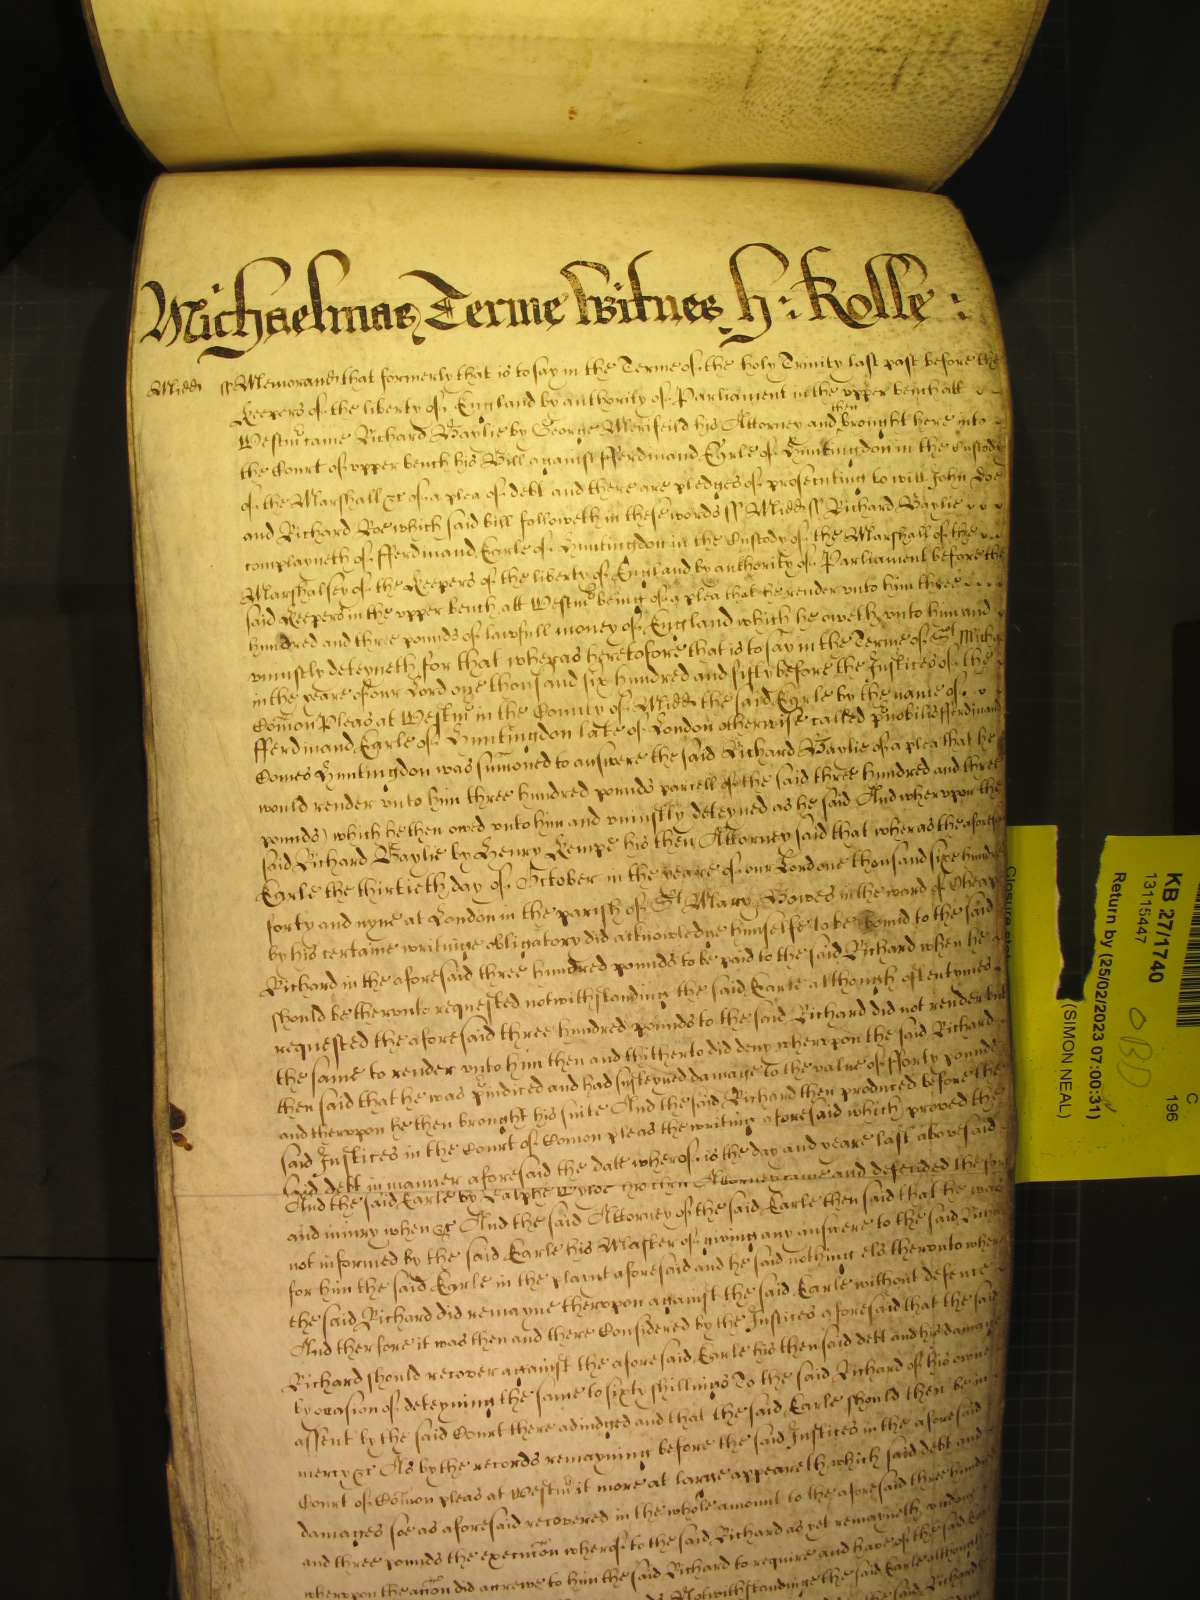 Michaelmas Terme Witnes H: Rolle:
Midd ss Memorand that formerly that is to say in the Terme of the holy Trinity last past before the
Keepers of the liberty of England by authority of Parliament in the upper bench att
Westm came Richard Baylie by George Merifeild his Attorney and then brought here into
the Court of upper bench his Bill against Fferdinand Earle of Huntingdon in the Custody
of the Marshall &c of a plea of debt and there are pledges of prosecuting to witt John Doe
and Richard Roe which said bill followeth in these words ss Midd ss Richard Baylie
complayneth of Fferdinand Earle of Huntingdon in the Custody of the Marshall of the
Marshalsey of the Keepers of the liberty of England by authority of Parliament before the
said Keepers in the upper bench att Westm being of a plea that he render unto him three
hundred and three pounds of lawfull money of England which he oweth unto him and
uniustly deteyneth for that wheras heretofore that is to say in the Terme of St Micha
in the yeare of our Lord one thousand six hundred and fifty before the Justices of the
Comon Pleas at Westm in the County of Midd the said Earle by the name of
Fferdinand Earle of Huntingdon late of London otherwise called Pnobilis Fferdinand
Comes Huntingdon was sumoned to answere the said Richard Baylie of a plea that he
would render unto him three hundred pounds parcell of the said three hundred and three
pounds) which he then owed unto him and uniustly deteyned as he said And wherupon the
said Richard Baylie by Henry Kempe his then Attorney said that wheras the aforesa
Earle the thirtieth day of October in the yeare of our Lord one thousand sixe hundr
forty and nyne at London in the parish of St Mary Bowes in the ward of Cheap
by his certaine writinge obligatory did acknowledge himselfe to be bound to the said
Richard in the aforesaid three hundred pounds to be paid to the said Richard when he
should be therunto requested notwithstanding the said Earle although oftentymes
requested the aforesaid three hundred pounds to the said Richard did not render but
the same to render unto him then and thitherto did deny wherupon the said Richard
then said that he was Piudiced and had susteyned damage to the value of fforty pounds
and therupon he then brought his suite And the said Richard then produced before the
said Justices in the Court of Comon pleas the writing aforesaid which proved the
said debt in manner aforesaid the date wherof is the day and yeare last abovesaid
And the said Earle by Ralphe his then Attorney came and defended the for
and iniury when &c And the said Attorney of the said Earle then said that he was
not informed by the said Earle his Master of giving any answere to the said Rich
for him the said Earle in the playnt aforesaid and he said nothing els therunto wher
the said Richard did remayne therupon against the said Earle without defence
And therfore it was then and there Considered by the Justices aforesaid that the said
Richard should recover against the aforesaid Earle his then said debt and his damage
by occasion of deteyning the same to sixty shillings To the said Richard of his owne
assent by the said Court there adiudged and that the said Earle should then be in
mercy &c As by the records remayning before the said Justices in the aforesaid
Court of Comon pleas at Westm it more at large appeareth which said debt and
damages soe as aforesaid recovered in the whole amount to the aforesaid three hundre
and three pounds the execution wherof to the said Richard as yet remayneth undone
wherupon the accon did accrewe to him the said Richard to require and have of the said Ear
Notwithstandinge the said Earle although
the said Richard
KB 27/1740
13115447
Return by (25/02/2023 07:00:31)
(SIMON NEAL)
C
196
OBD